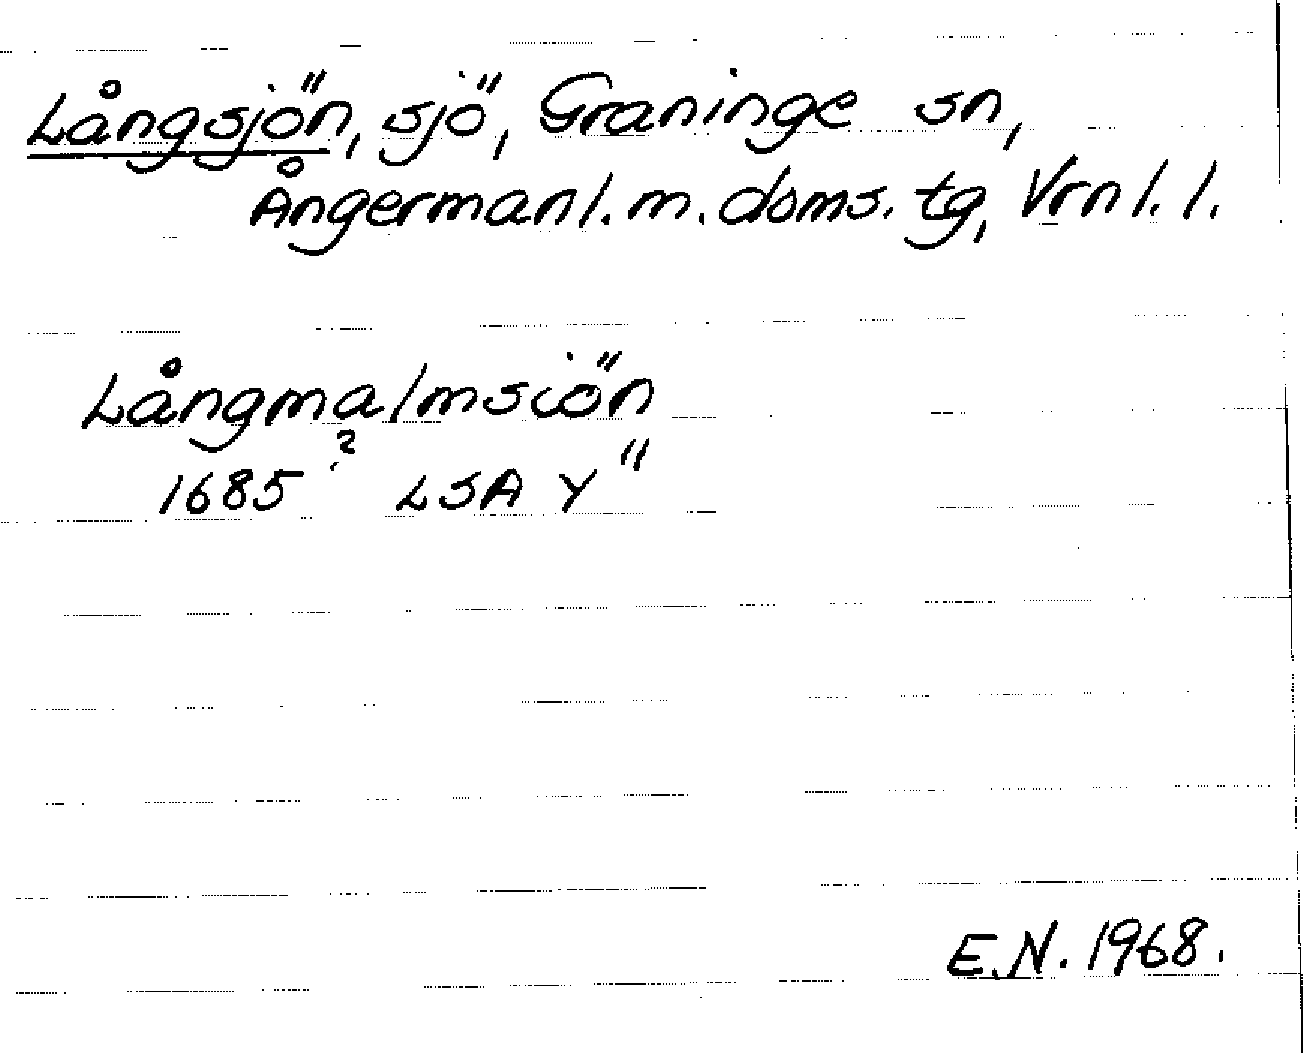 Långsjön, sjö, Graninge sn,
Ångermanl. m. doms. tg, Vrnl. l.
Långmalmsiön
1685 ? LSA Y"
E.N. 1968.